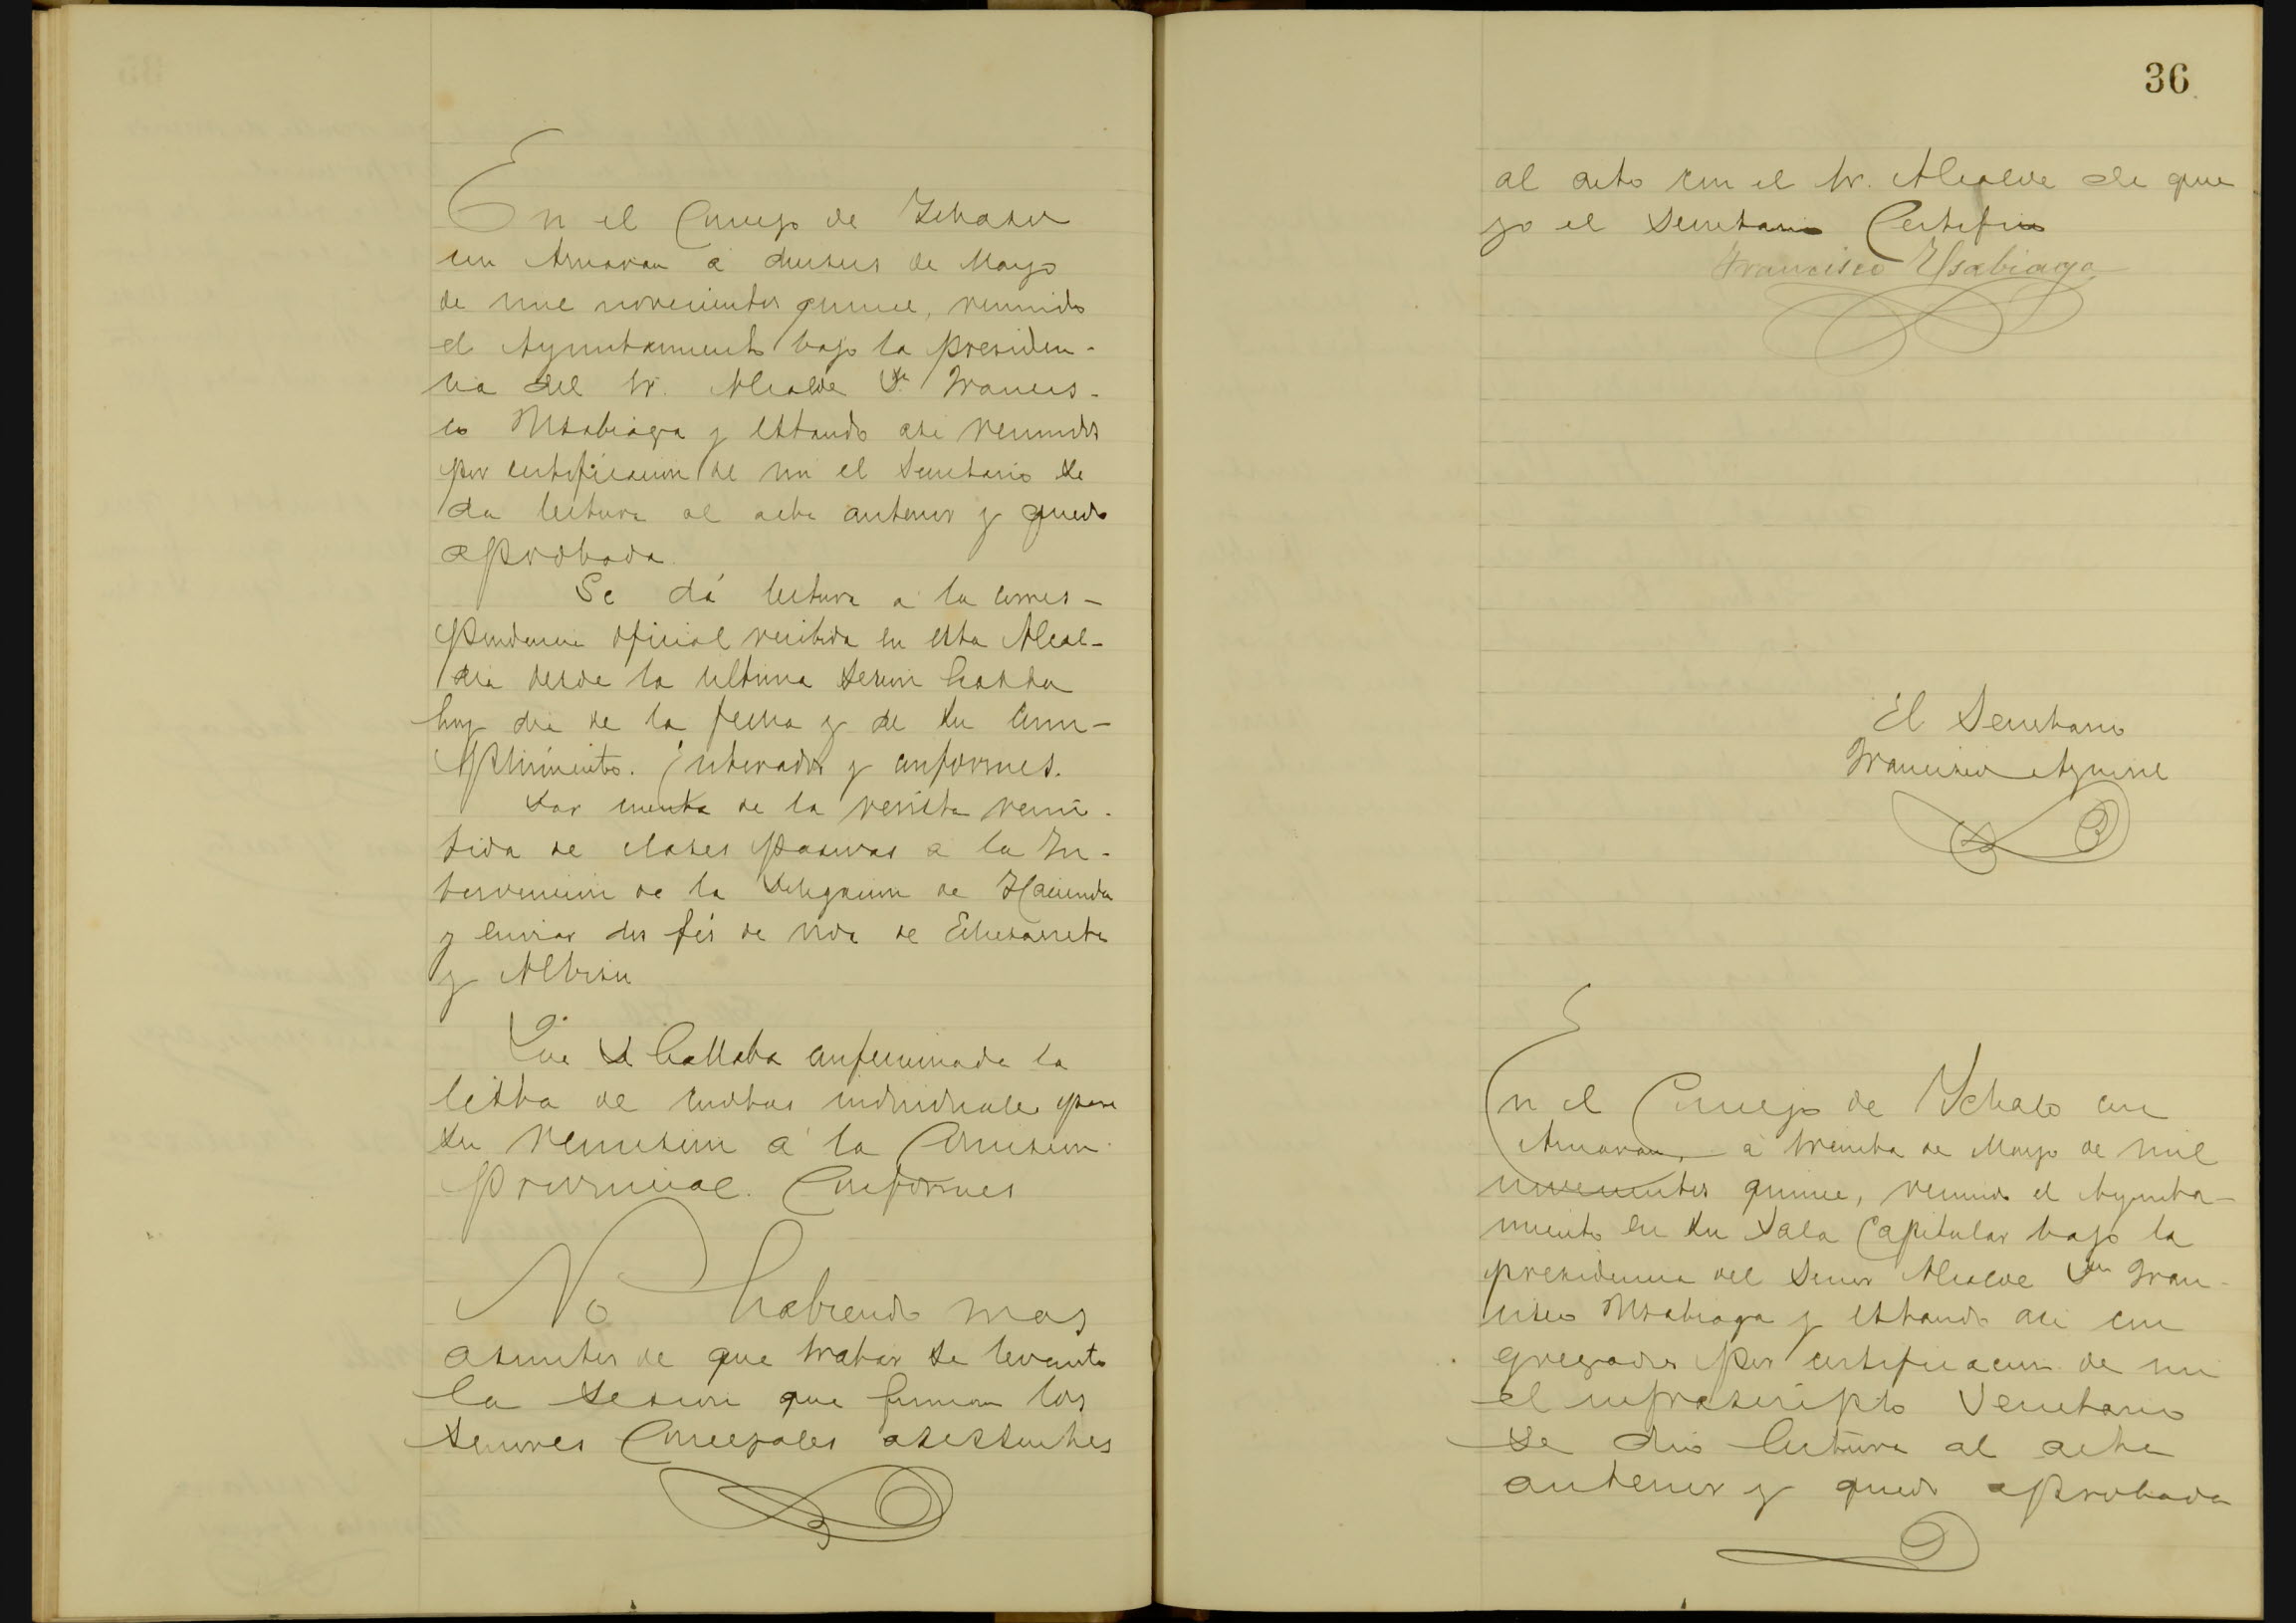 En el Concejo de Ichaso
con Arriaran a dieciseis de Mayo
de mil novecientos quince, reunido
el Ayuntamiento bajo la presiden-
cia del Sr. Alcalde Dn. Francis-
co Ysabiaga y estando asi reunidos
por certificacion de mi el Secretario se
da lectura al acta anterior y quedo
aprobada.
Se dá lectura a la corres-
pondencia oficial recibida en esta Alcal-
dia desde la ultima sesion hasta
hoy dia de la fecha y de su cum-
plimiento. Enterados y conformes.
Dar cuenta de la revista remi-
tida de clases pasivas a la In-
tervencion de la Delegacion de Hacienda
y enviar dos fés de vida de Echezarreta
y Albisu
Que se hallaba confeccionada la
lista de cuotas individuales para
su remision a la Comision
Provincial. Conformes
No habiendo mas
asuntos de que tratar se levanto
la sesion que firman los
Senores Concejales asistentes
36
al acto con el Sr. Alcalde de que
yo el Secretario Certifico
Francisco Ysabiaga
El Secretario
Francisco Aguirre
En el Concejo de Ichaso con
Arriaran, a treinta de Mayo de mil
novecientos quince, reunido el Ayunta-
miento en su Sala Capitular bajo la
presidencia del Senor Alcalde Dn Fran-
cisco Ysabiaga y estando asi con
gregados por certificacion de mi
el infrascripto Secretario
se dio lectura al acta
anterior y quedo aprobada